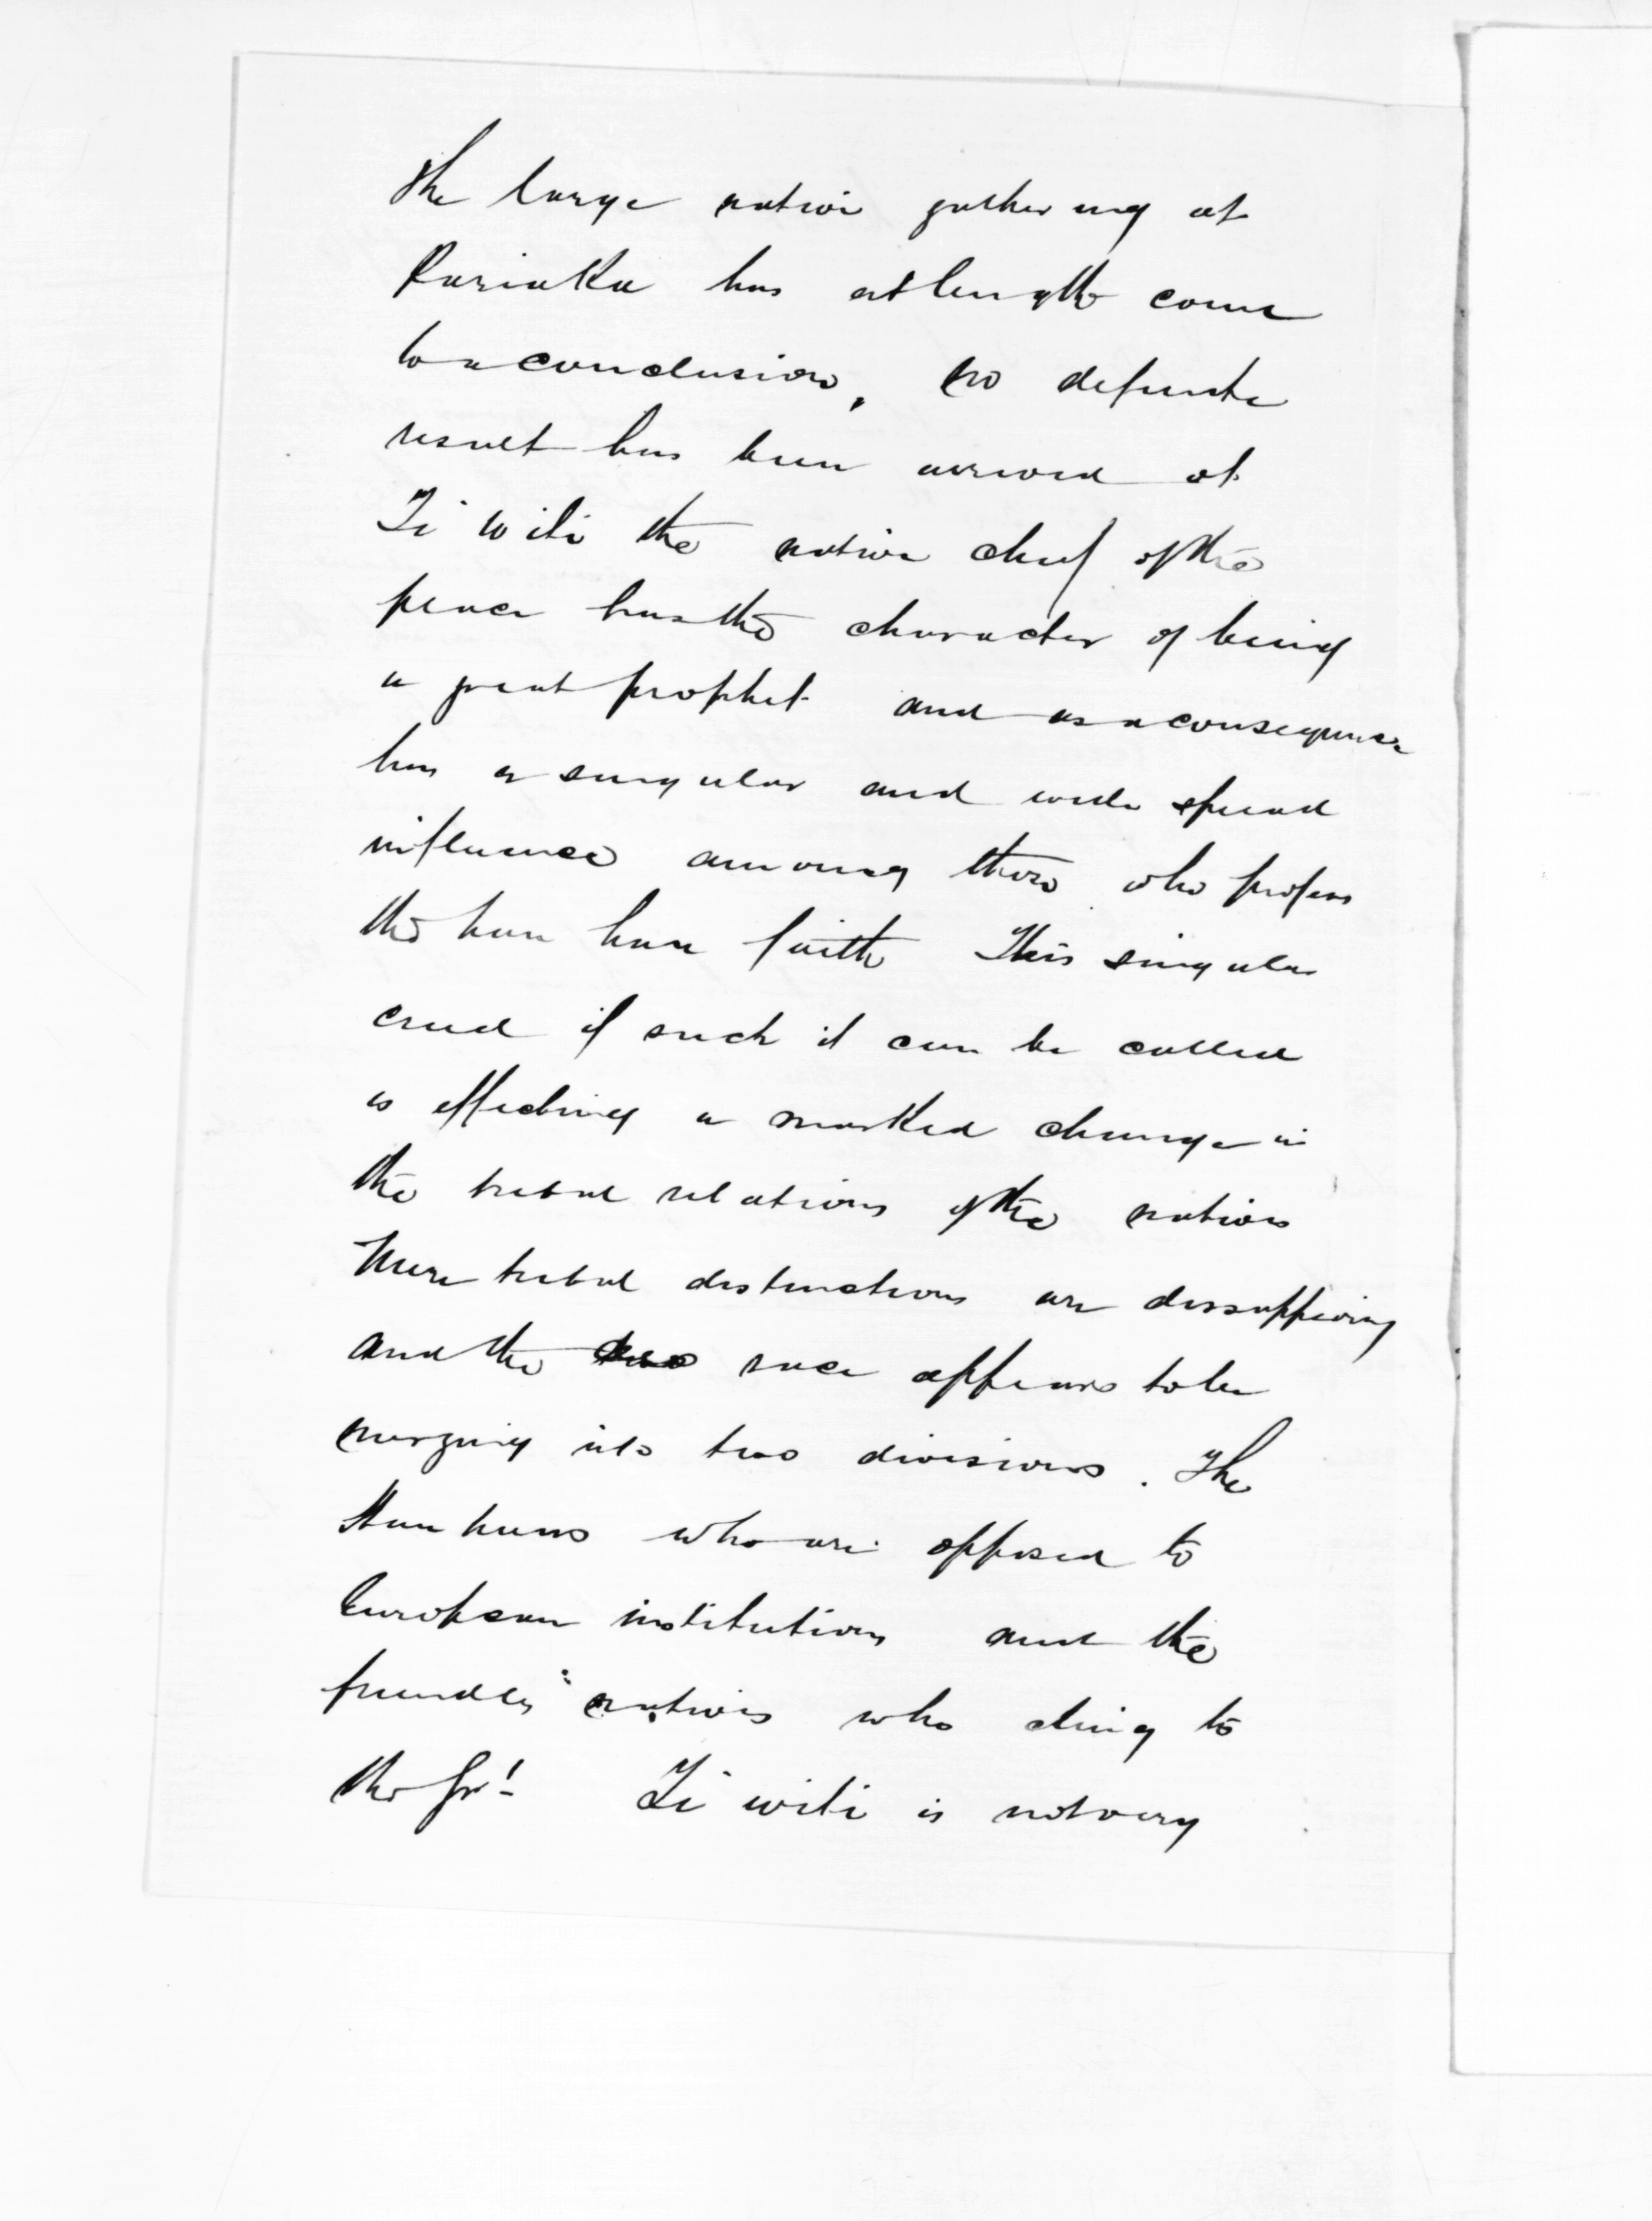 The large native gathering at
Pariaka has at length come
to a conclusion, no definite
result has been arrived at
Te Witi the native chief of the
peace has the character of being
a great prophet and as a consequence
has a singular and wide spread
influence among those who profess
the hau hau faith This singular
creed if such it can be called
is effecting a marked change in
the tribal relations of the natives
mere tribal distinctions are dissappearing
and the race appears to be
merging into two divisions. The
Hau haus who are opposed to
European institutions and the
friendly natives who cling to
the Govt Te witi is not very